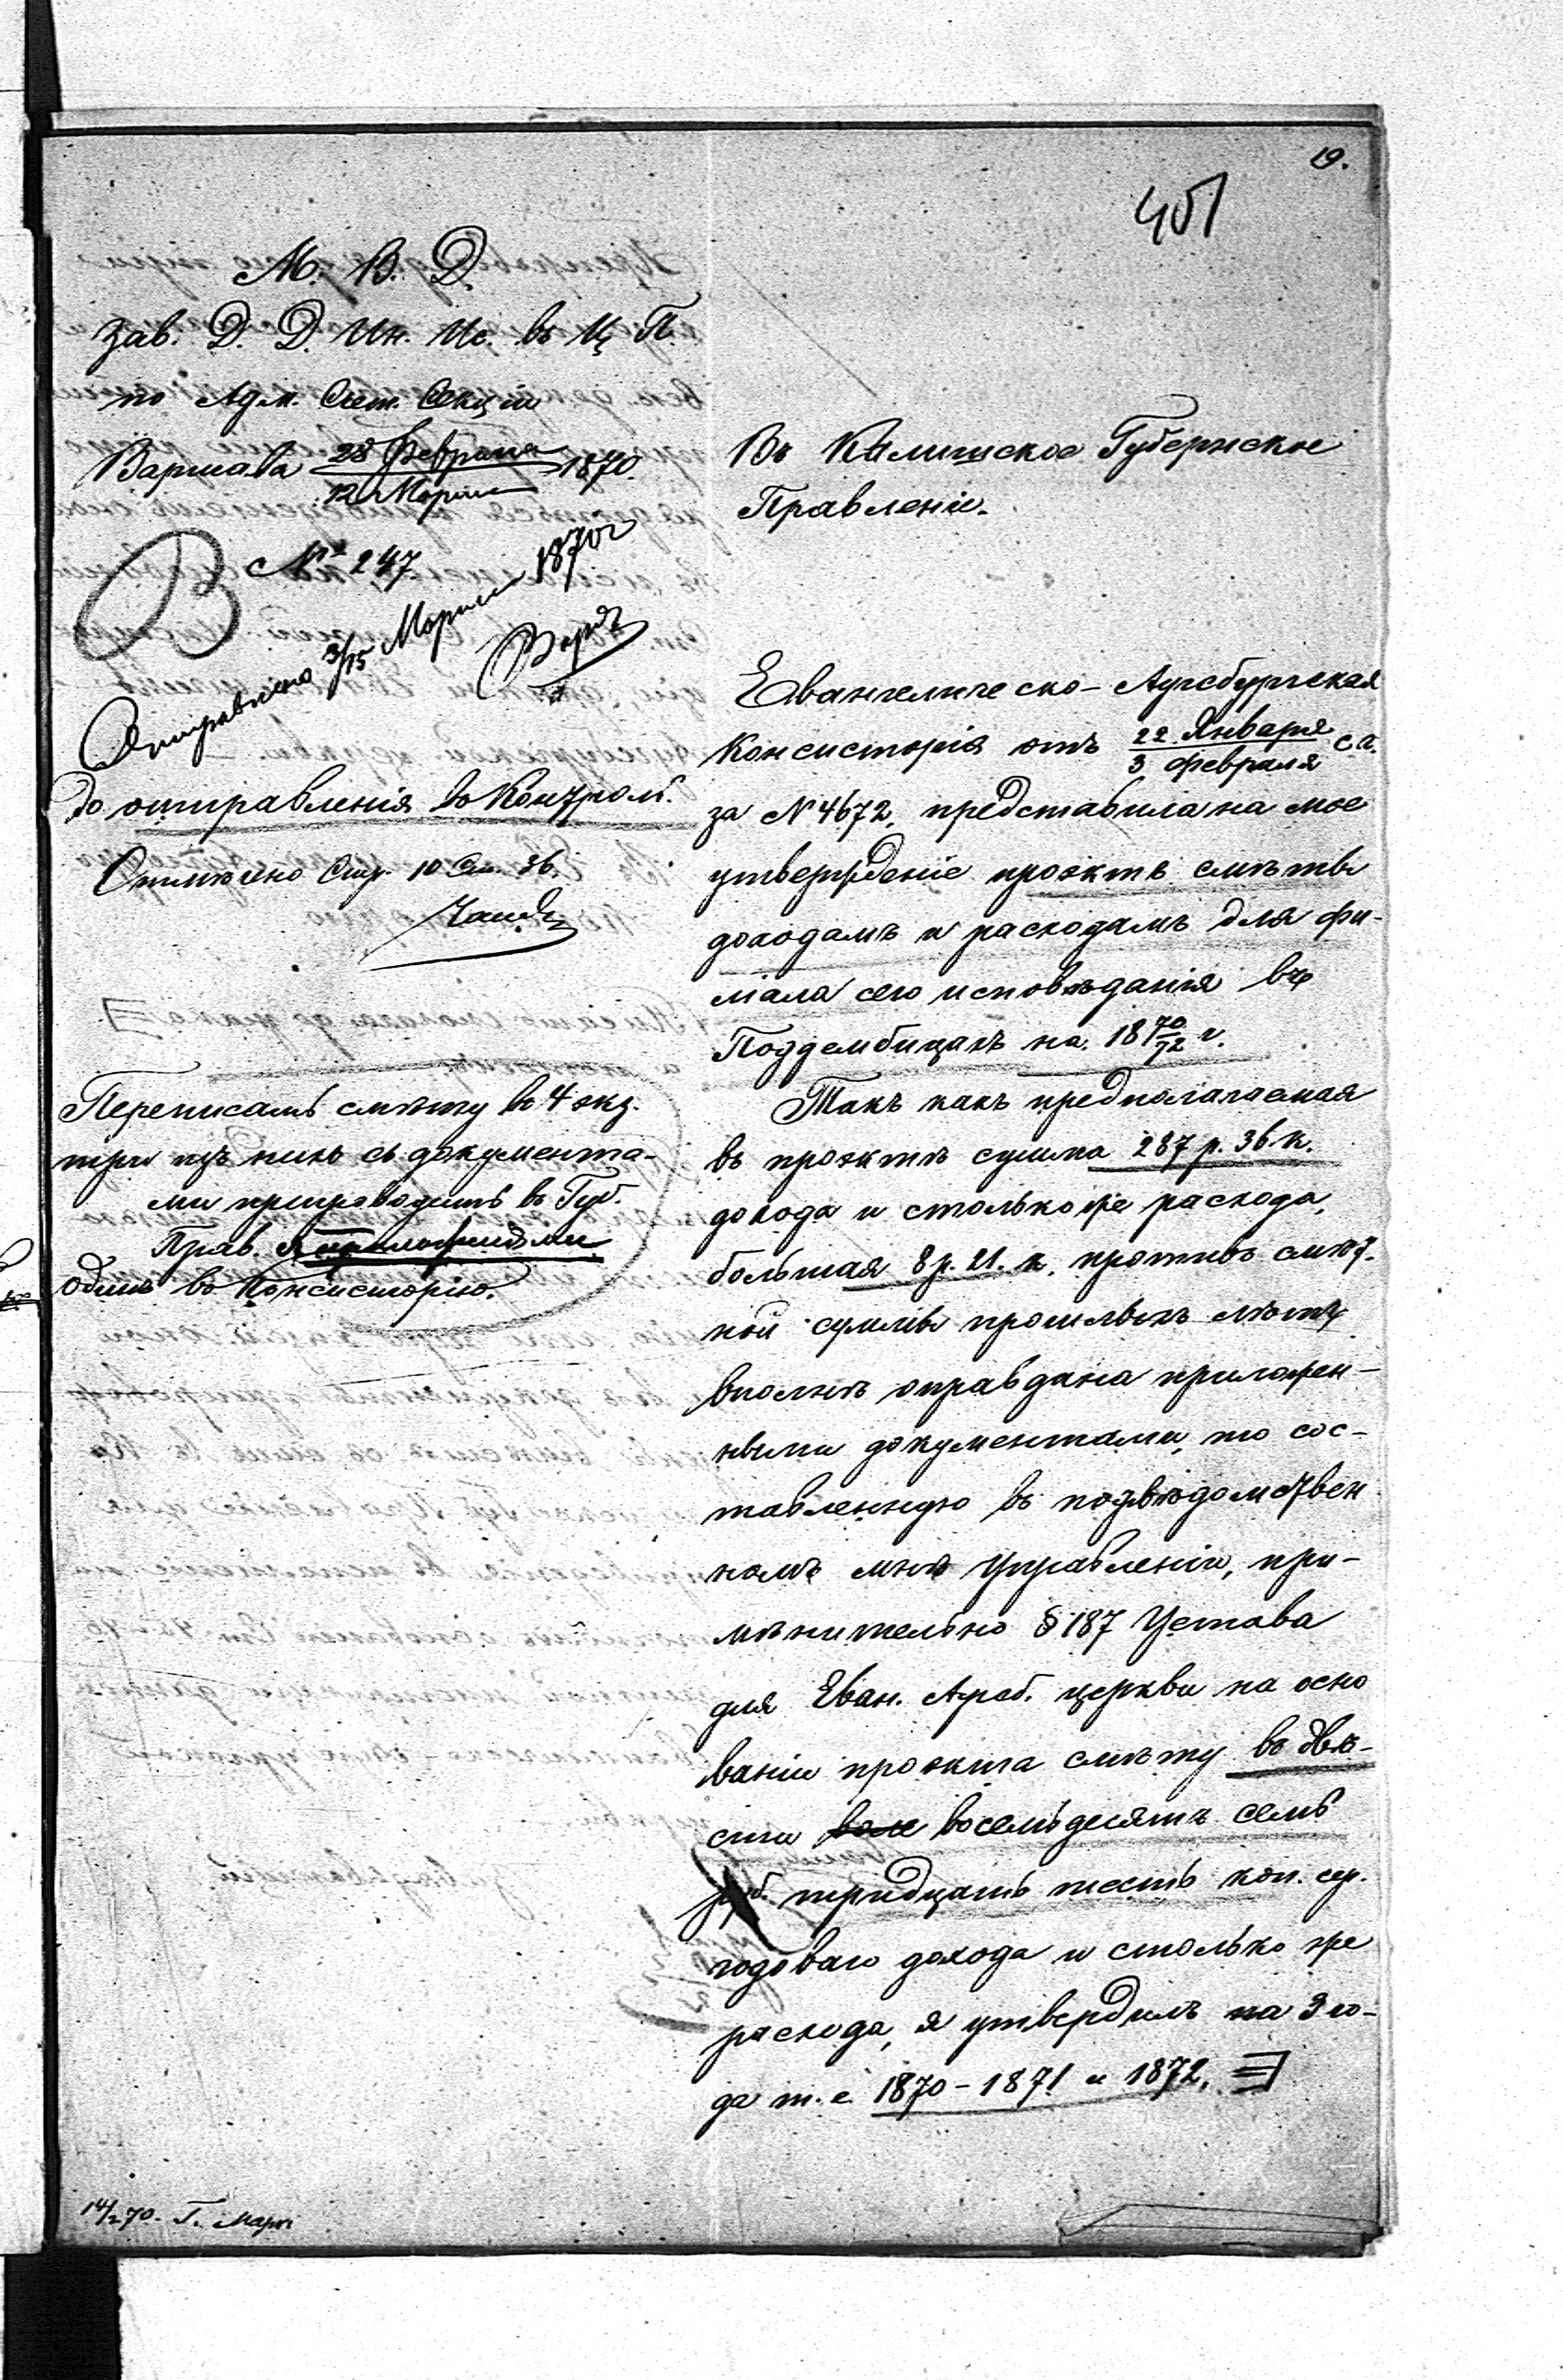 19.
451
М. В. Д.
Зав. Д. Д. Ин. Ис. въ Ц. П.
по Адм. Счет. Секціи
Варшава 28 Февраля / 12 Марта 1870.
№ 247
Отправлено 3/15 Марта 1870 г
до отправленія въ Контрол.
Отмѣчено Стр. 10 Ст. 36.
Переписать смѣту въ 4 экз.
три изъ нихъ съ документа-
ми препроводить въ Губ.
Прав.
одинъ въ Консисторію.
14/2 70. Г. Март
Въ Калишское Губернское
Правленіе.
Евангелическо-Аугсбургская
Консисторія отъ 22 Января / 3 февраля с. г.
за № 4672, представила на мое
утвержденіе проэктъ смѣты
доходамъ и расходамъ для фи-
ліала сего исповѣданія въ
Поддембицахъ на 1870/72 г.
Такъ какъ предполагаемая
въ проэктѣ сумма 287 р. 36 к.
дохода и столько же расхода,
большая 8 р. 21. к. противъ смѣт.
ной суммы прошлыхъ лѣтъ
вполнѣ оправдана приложен-
ными документами, то сос-
тавленную въ подвѣдомствен
номъ мнѣ Управленіи, при-
мѣнительно § 187 Устава
для Еван. Аугсб. церкви на осно
ваніи проэкта смѣту въ двѣ-
сти восемьдесятъ семь
руб. тридцать шесть коп. сер.
годоваго дохода и столько же
расхода, я утвердилъ на 3 го-
да т. е. 1870 - 1871 и 1872,